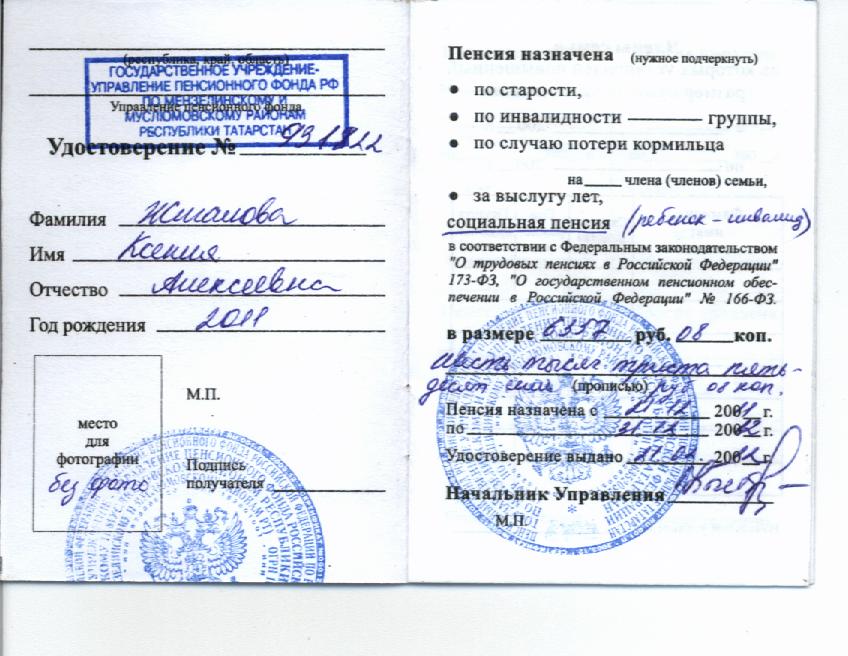 (республика, край, область)
ГОСУДАРСТВЕННОЕ УЧРЕЖДЕНИЕ-
УПРАВЛЕНИЕ ПЕНСИОННОГО ФОНДА РФ
ПО МЕНЗЕЛИНСКОМУ И
Управление пенсионного фонда
МУСЛЮМОВСКОМУ РАЙОНАМ
РЕСПУБЛИКИ ТАТАРСТАН
Удостоверение №
Фамилия
Имя Ксения
Отчество Алексеевна
Год рождения 2011
место
для
фотографии
без фото
М.П.
Подпись
получателя
Пенсия назначена (нужное подчеркнуть)
• по старости,
• по инвалидности ———— группы,
• по случаю потери кормильца
на_____ члена (членов) семьи,
• за выслугу лет,
социальная пенсия (ребенок-инвалид)
в соответствии с Федеральным законодательством
"О трудовых пенсиях в Российской Федерации"
173-ФЗ, "О государственном пенсионном обес-
печении в Российской Федерации" № 166-ФЗ.
в размере 6357 руб. 08 коп.
Шесть тысяч триста пять-
десят семь (прописью) руб 08 коп.
Пенсия назначена с 21.12 2011 г.
по г.
Удостоверение выдано г.
Начальник Управления
М.П.